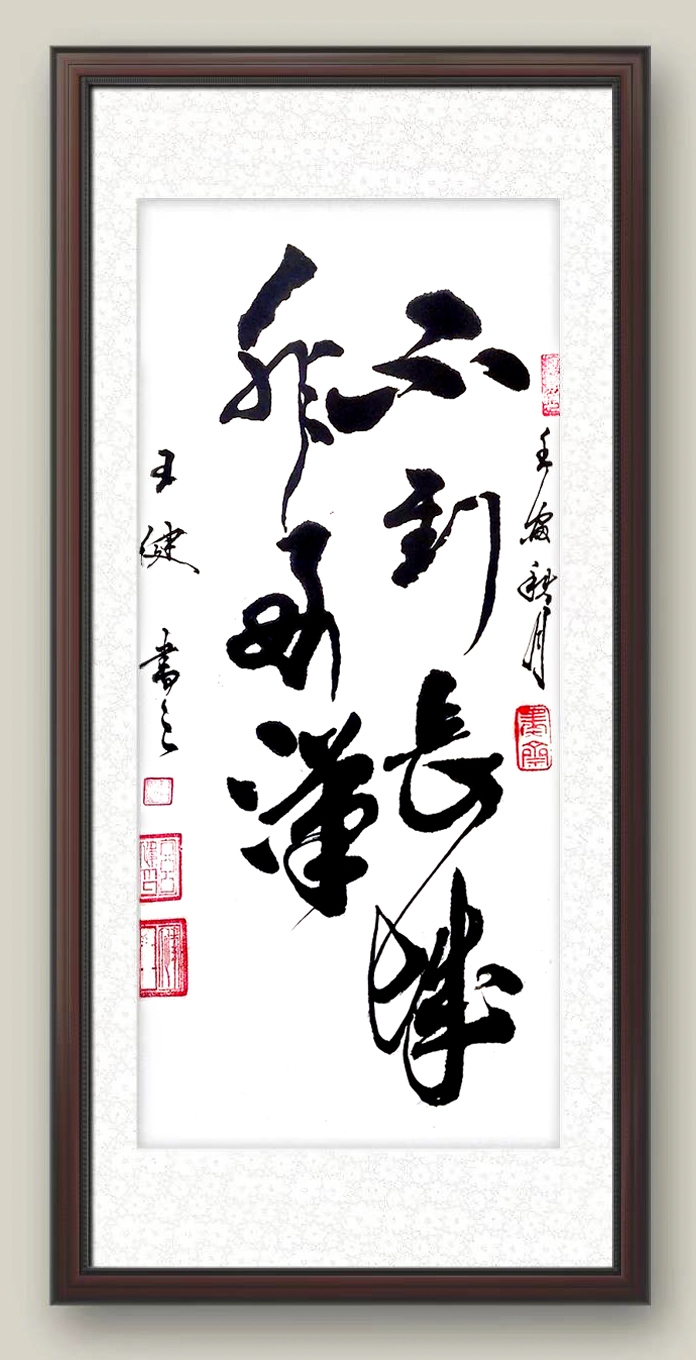 壬寅秋月
不到長城
非好漢
王健書之